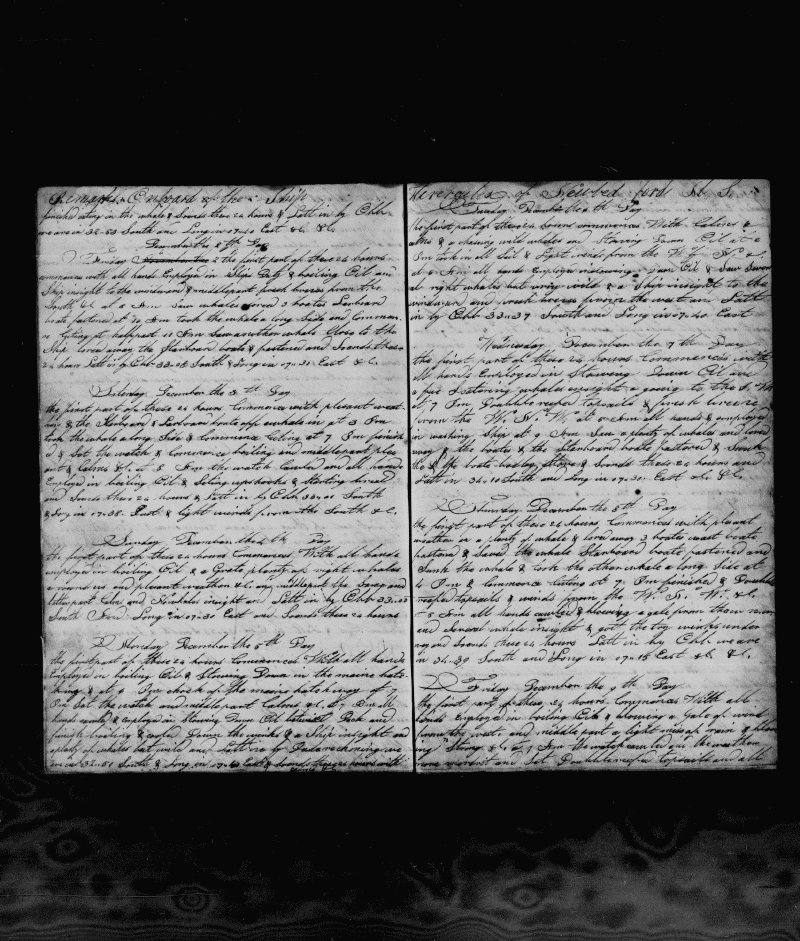 Remarks Onboard of the Ship
finished cuting in the whale & Sounds these 24 hours & Latt in by Obb
we are in 32-50 South and Long in 07-40 East &c. &c.
December the 2th Day
Friday the first part of these 24 hours
commences with all hands Employed in Ship Duty & boiling Oil and
Ship insight to the windward & middle part fresh breeses from the
South &c at 8 Am Saw whales lowerd 3 boates Larboard
boate fastened at 10 Am took the whale a long Side and Commen
Cuting at half past 11 Am Saw another whale Close to the
Ship lowerd away the Starboard boate & fastened and Sounds these
24 hours Latt in by Obb 33-08 South & Long in 07-31 East &c.
Saterday December the 3th Day
the first part of these 24 hours Commences with plesant weat
her & the Starboard & Larboard boate off a whale in at 3 Pm
took the whale a long Side & Commence Cuting at 7 Pm finish
d & Set the watch & Commence boiling and middle part ples
ant & Calms &c. at 5 Am the watch Cauled and all hands
Employed in boiling Oil & Seting up hooks & Starting bread
and Sounds these 24 hours & Latt in by Obb South
& Long in 07-38 East & light winds from the South &c.
Sunday December the 4th Day
the first part of these 24 hours Commences With all hands
employed in boiling Oil & a Greate plenty of right whales
a round us and plesant weather &c. and middle part the Same and
latter part Calms and whales insight and Latt in by Obb
South And Long in 07-30 East and Sounds these 24 hours
Monday December the 5th Day
the first part of these 24 hours Commences With all hands
Employed in boiling Oil & Stowing Down in the maine hatc
hing & at 6 Pm chock of the maine hatchway at 7
Pm Set the watch and middle part Calms &c. at 7 Am all
hands cauled & employed in Stowing Down Oil between Deck and
finish boiling & cooled Down the works & a Ship insight and
a plenty of whales but wild and Latt in by we
are in 32-51 South & Long in East & Sounds these 24 hours with
Hercules of Newbedford
Tuesday December the 6th Day
the first part of these 24 hours commences With Calmes &
alms & a chasing wild whales and Stowing Down Oil at 6
Pm took in all Sail & Light winds from the W. N. &c.
at 6 Am all hands Employed Stowing Down Oil & Saw Several
right whales but very wild & a Ship insight to the
windward and fresh breese from the west and Latt
in by Obb 33-37 South and Long in 07-40 East
Wednesday December the 7th Day
the first part of these 24 hours Commences with
all hands Employed in Stowing Down Oil and
a few whales insight a going to the
at 7 Pm Doubble reefed topsails & fresh breeze
from the W. N. W. at Am all hands & employed
in washing Ship at 9 Am Saw a plenty of whales and lowerd
away the boates & the Starboard boate fastened & Sunk
the boate Stove & Sounds these 24 hours and
Latt in 34.10 South and Long in 07-30 East &c. &c.
Thursday December the 8th Day
the first part of these 24 hours Commences with plesant
weather & a plenty of whales & lowerd away 3 boates waist boate
fastened & Saved the whale Starboard boate fastened and
Sunk the whale & took the other whale a long Side at
4 Pm & Commence Cuting at 7 Pm finished & Doubble
reefed topsails & winds from the W. N. W. &c.
5 Am all hands cauled & blowing a gale from the
and Several whale insight & got the try works under
way and Sounds these 24 hours Latt in by Obb we are
in 34-39 South and Long in 07-18 East &c &c.
Friday December the 9th Day
the first part of these 24 hours Commences With all
hands Employed in boiling Oile & blowing a Gale of wind
from the west and middle part a light mist of rain & blow
ing Strong &c. at 4 Am the watch cauled out
Set Doubble reefed topsails and all